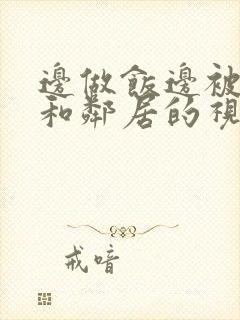 邊做飯邊被
和鄰居的視
戒喑